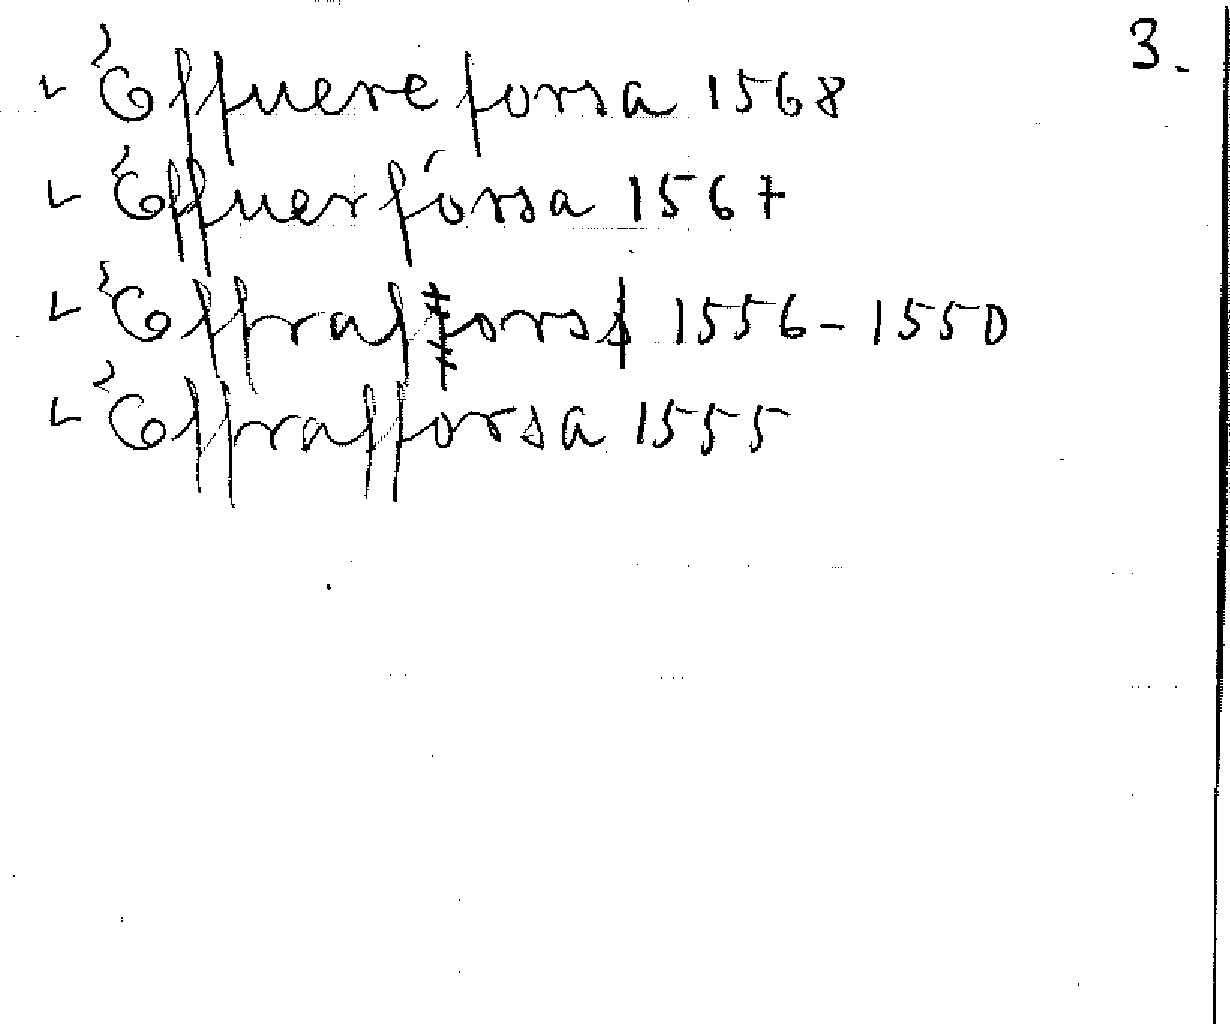 3.
Öffuereforsa 1568
Öffuerforsa 1567
Öffrafors 1556-1550
Öffrafforsa 1555